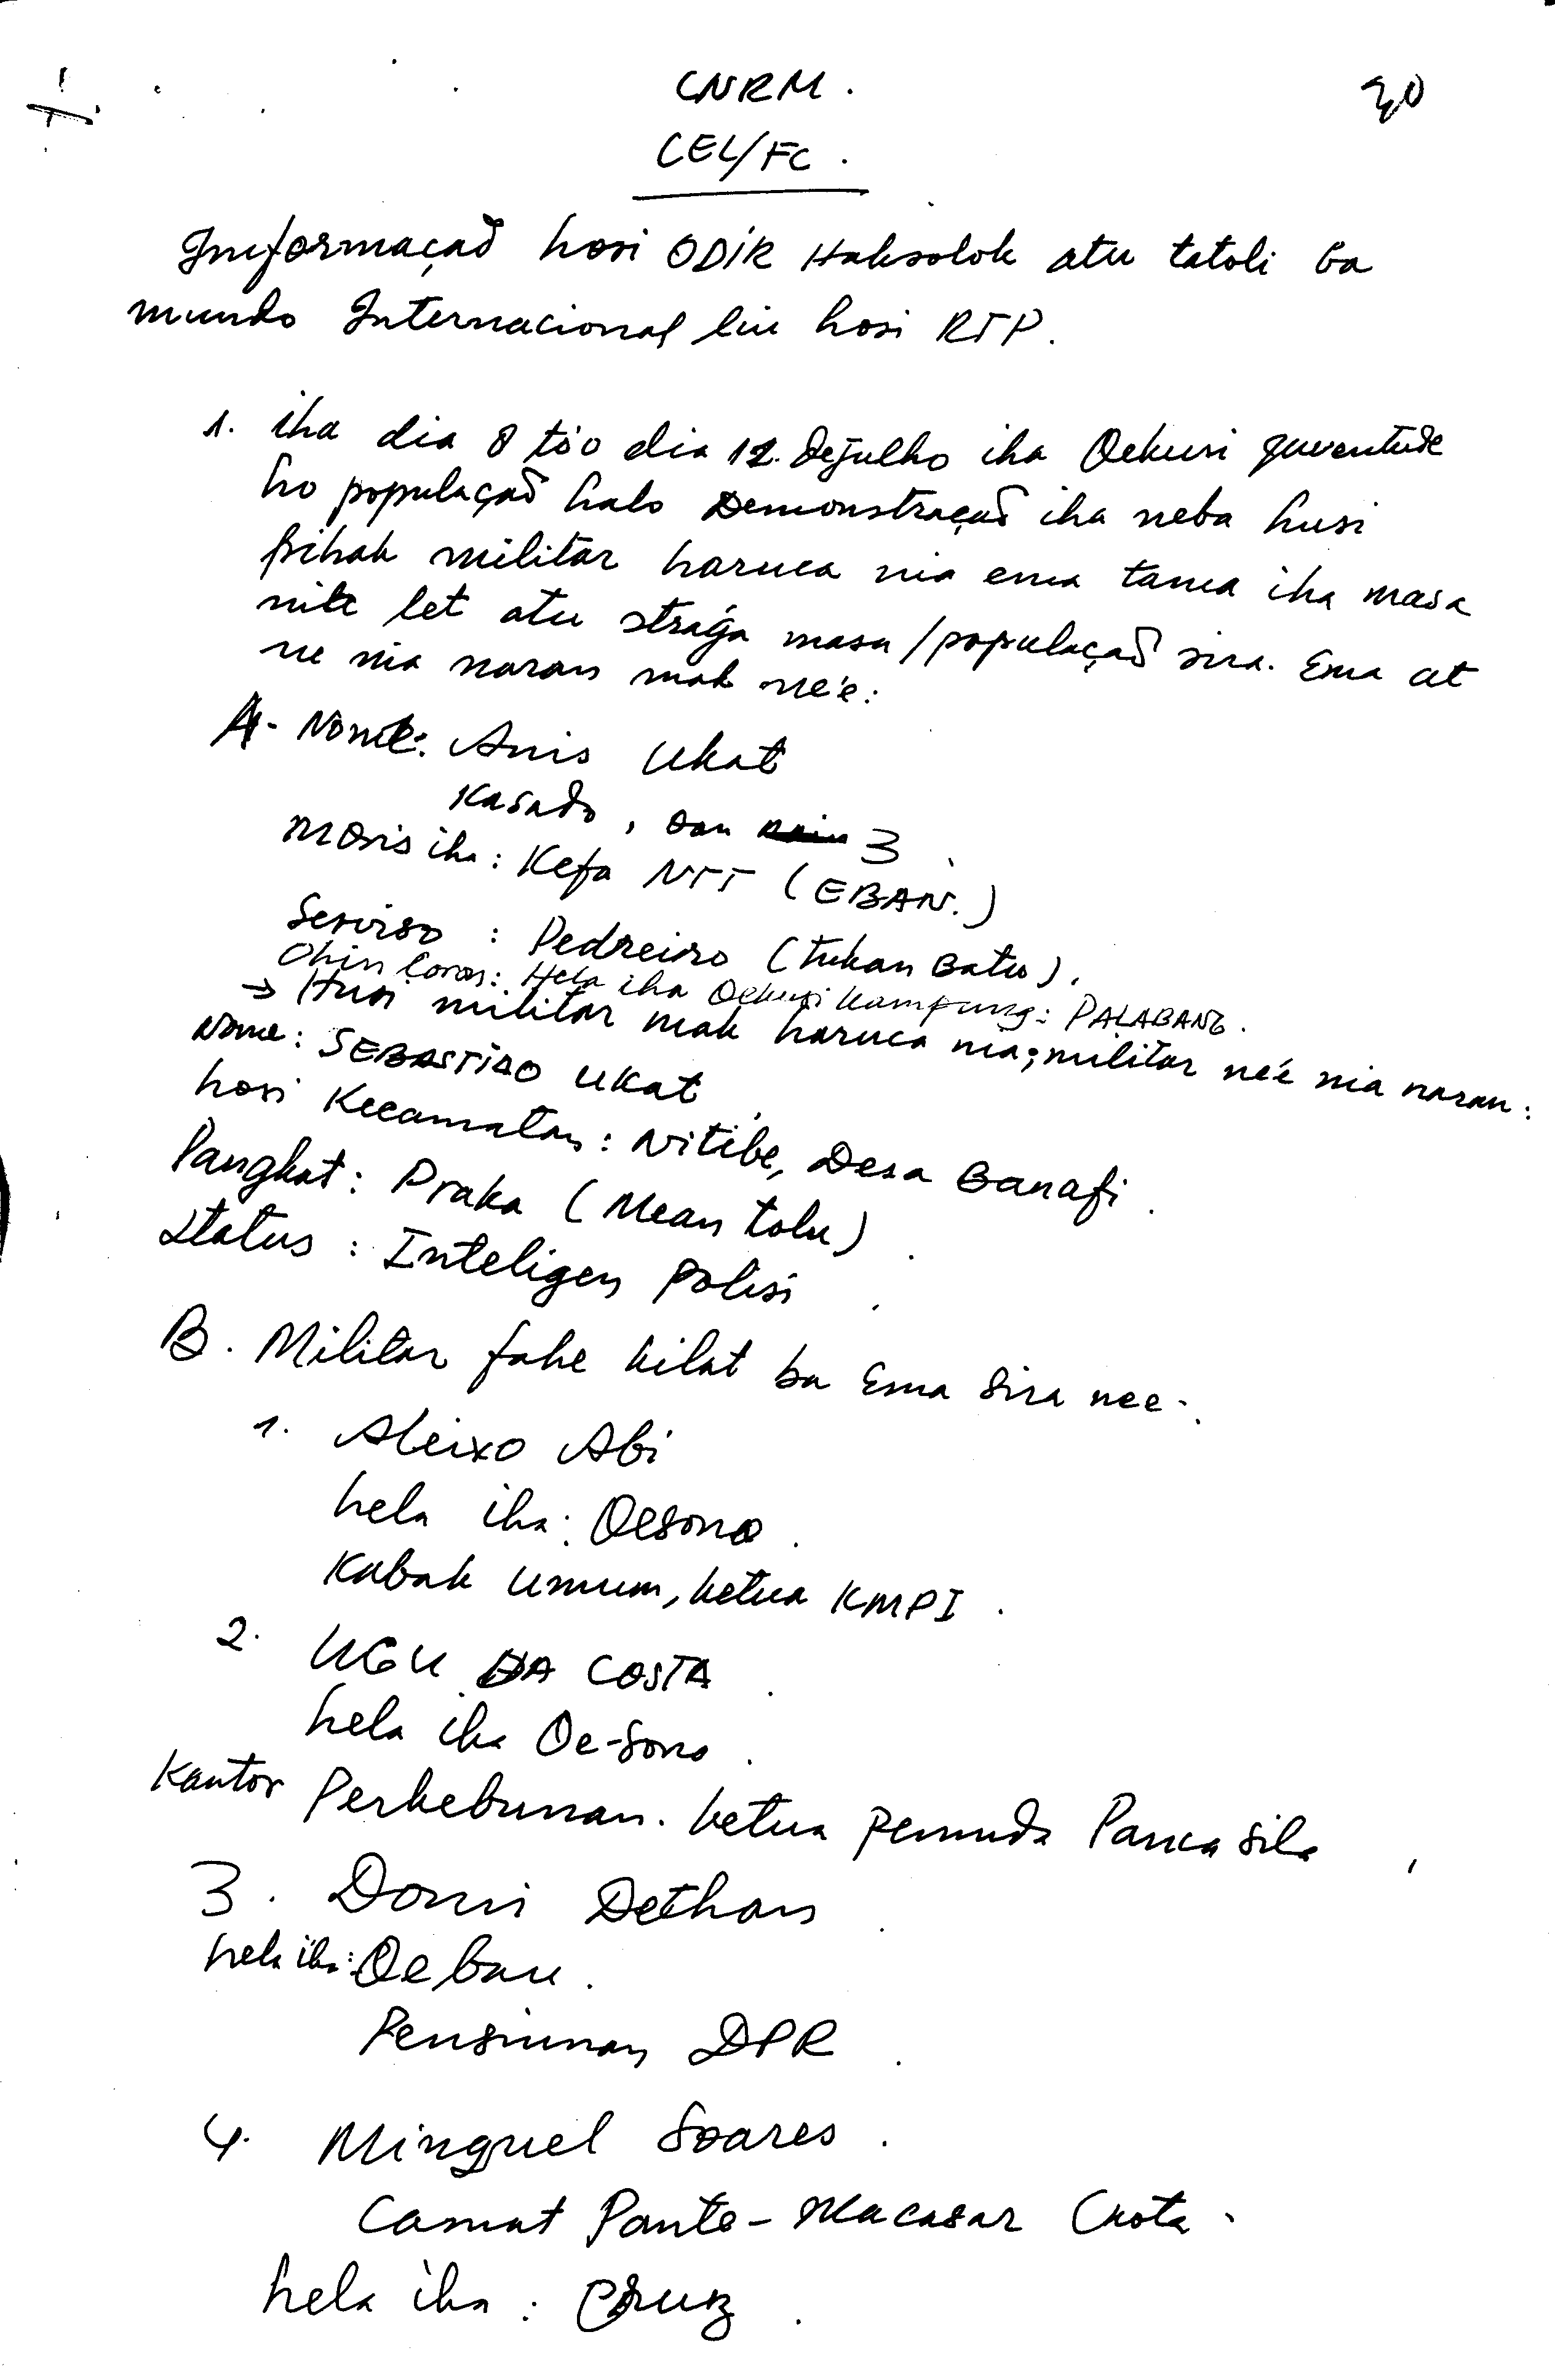 CNRM.
30
CEL/FC.
Informaçaõ hosi ODIR Haksolok atu tatoli ba
mundo Internacional liu hosi RTP.
1. iha dia 8 tóo dia 12. de julho iha Oekusi juventude
ho populaçaõ halo Demonstraçaõ iha neba husi
pihak militar haruca nia ema tama iha masa
nite let atu straga masa/populaçaõ sira. Ema at
ne nia naran mak ne'e:
A- Nome: Anis Ukat
Kasado, oan 3
Moris iha: Kefa NTT (EBAN.)
Serviso : Pedreiro (tukan Batu).
Ohin loron: Hela iha Oekusi kampung: PALABANG.
→ Husi militar mak haruca nia; militar ne'e nia naran:
Nome: SEBASTIAO UKAT
hosi Kecamatan: Nitibe, Desa Banafi.
Pangkat: Praka (Mean tolu)
Status : Inteligen Polisi
B. Militar fahe kilat ba Ema sira nee-.
1. Aleixo Abi
hela iha: Oesono.
Kabak Umum, ketua KMPI.
2. UGU DA COSTA
hela iha Oe-Sono.
Kantor Perkebunan. ketua Pemuda Panca sila
3. Domi Dethan
hela iha: Oebau.
Pensiunan DPR
4. Minguel Soares.
Camat Pante-Macasar (Kota.
hela iha : Cruz